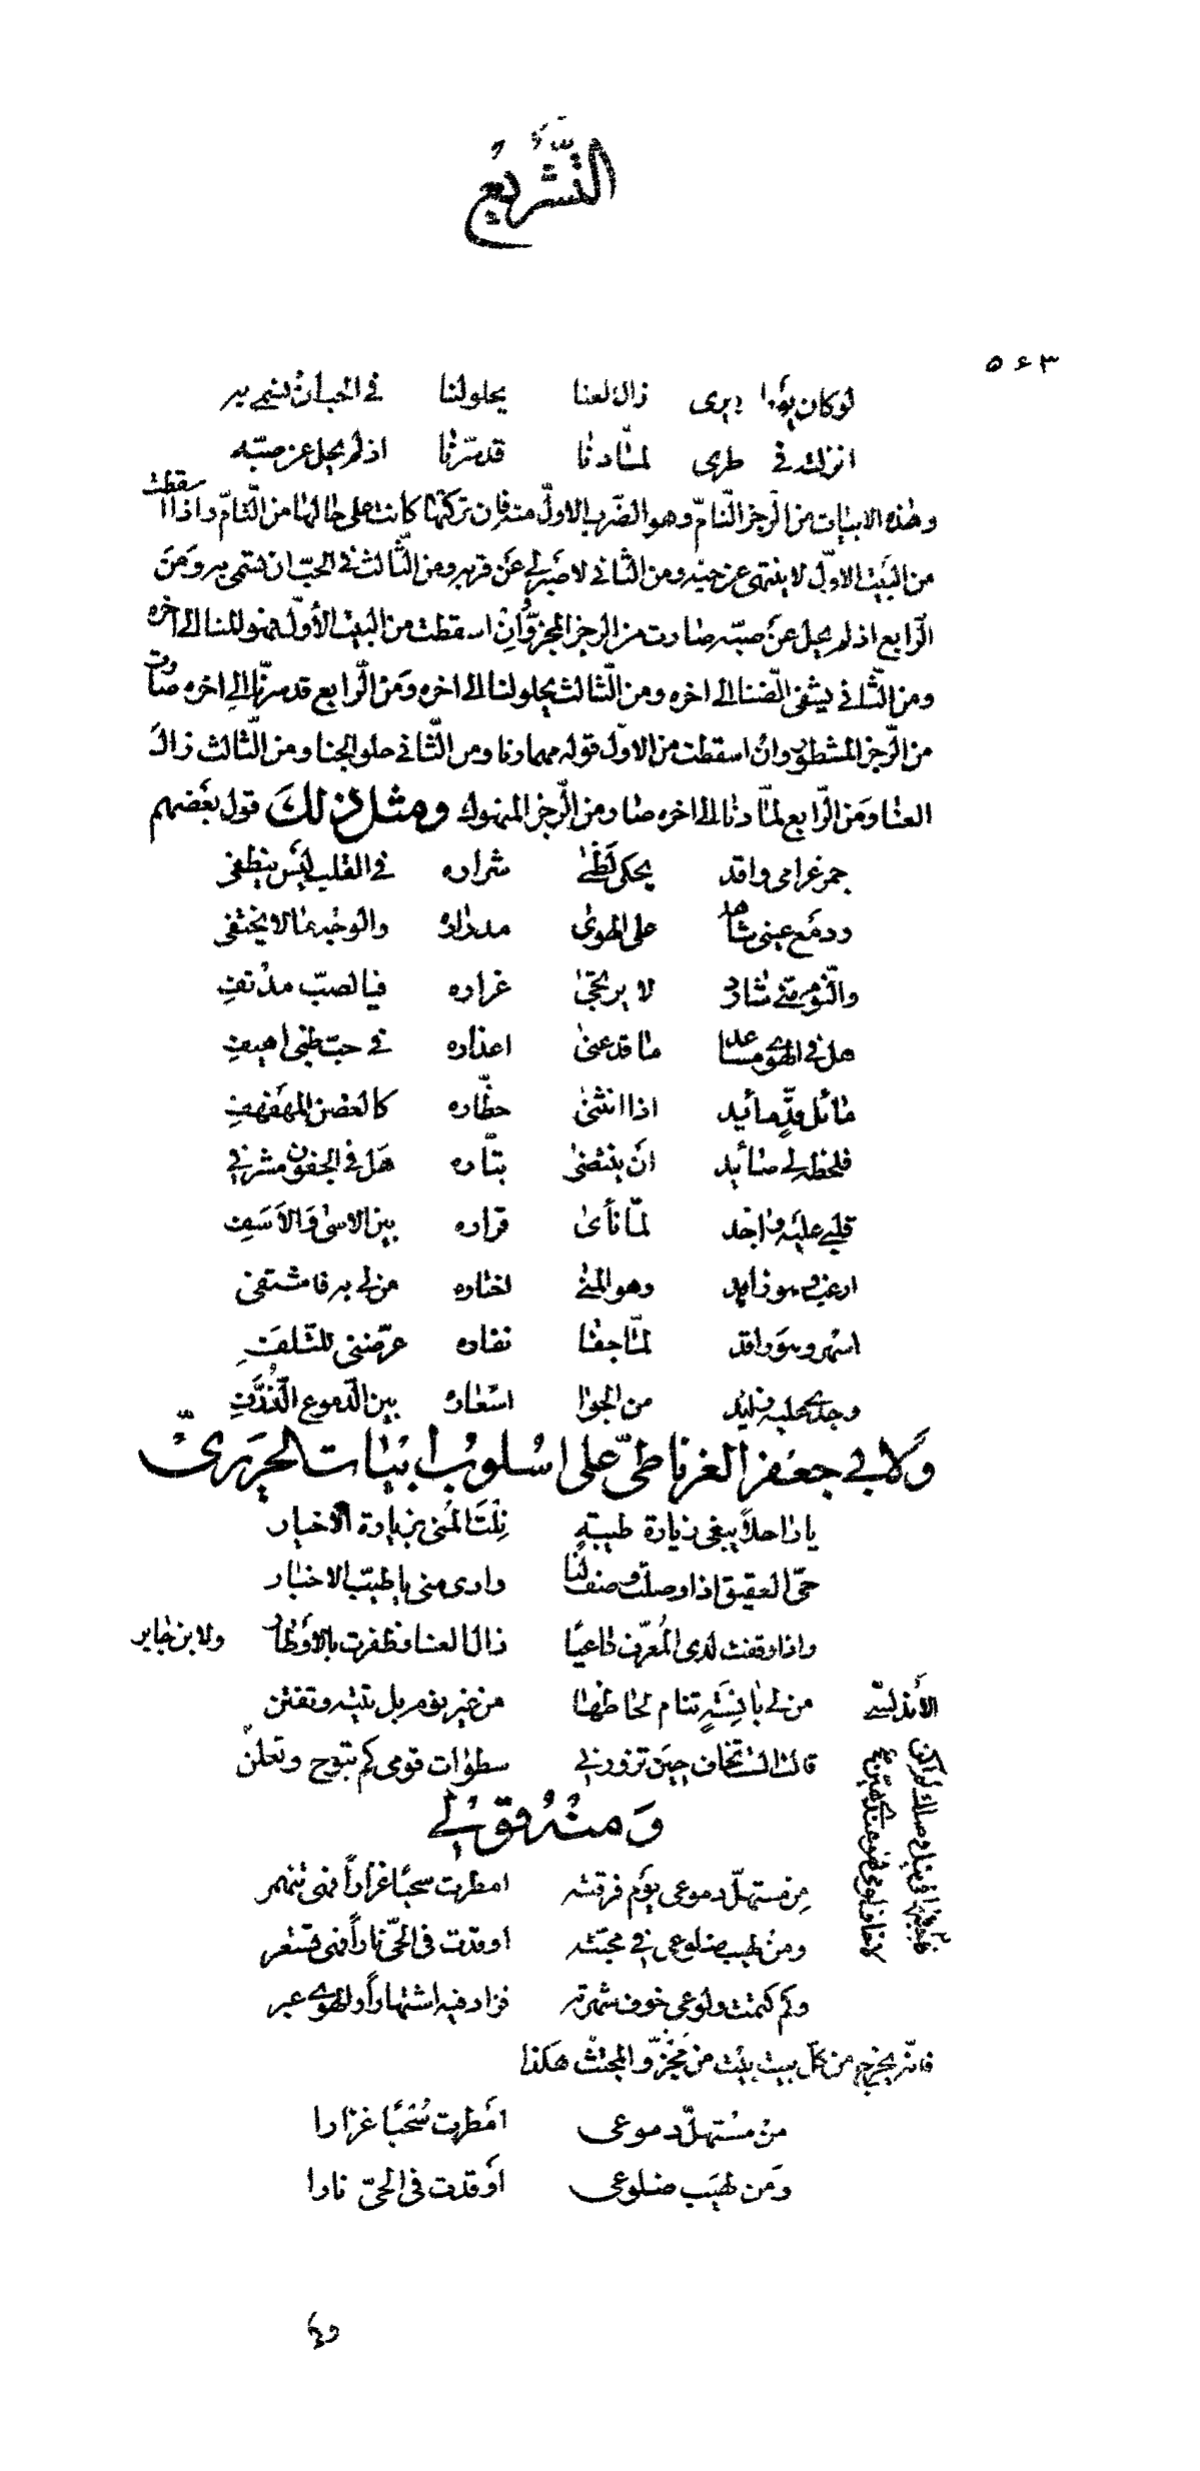 التَّشْريعُ
٥٤٣
لو كان يوما يرى زال العنا يحلو لنا في الحب ان ننمي به
انزلته في طرى لمّا دنا قد سرّنا اذ لم يحل عن صبّه
وهذه الابيات من الرّجز التّامّ وهو الضّرب الاوّل منه فان تركتها كانت على حالها من التّامّ واذا اسقطت
من البيت الاوّل لا ينتهى عن حبّه ومن الثّاني لا صبر لي عن قربه ومن الثّالث في الحبّ ان ننتمي به ومن
الرّابع اذ لم يحل عن صبّه صارت من الرجز المجزوّ وان اسقطت من البيت الأوّل يهنو للنا الى اخره
ومن الثّاني يشفى الضّنا الى اخره ومن الثّالث يحلو لنا الى اخره ومن الرّابع قد سرّنا الى اخره صارت
من الرّجز المشطور وان اسقطت من الاوّل قوله مهما دنا ومن الثّاني حلو الجنا ومن الثّالث زال
العنا ومن الرّابع لمّا دنا الى اخره صار من الرّجز المنهوك ومثل ذلك قول بعضهم
جمر غرامى واقد يحكى لظى شراره في القلب ليس ينطفى
ودمع عينى شاهد على الهوى مدراره والوجد مما لا يختفى
والنّوم منّى شارد لا يرتجى غراره فيا لصبّ مدنف
هل في الهوى مساعد ما قد عنى اعذاره في حبّ ظبى اهيف
مائل قدّ مائد اذا انثنى خطّاره كالغصن المهفهف
فلحظه لي صائد ان ينتضى بتّاره هل في الجفون مشرفي
قلبي عليه واجد لمّا نأى قراره بين الاسى والأسف
ارغب وهو زاهد وهو المنى اختاره من لي به فاشتفى
اسهر وهو راقد لمّا جفا نفاره عرّضني للتّلف
وجدي عليه زايد من الجوا اسعاره بين الدّموع الذّرّف
ولأبي جعفر الغرناطيّ على اسلوب ابيات الحريريّ
يا راحلاً يبغى زيارة طيبةٍ نلت المنى بزيارة الاخيار
حيّ العقيق اذا وصلت وصف لنا وادى منى يا طيّب الاخبار
واذا وقفت لدى المعرّف داعيًا زال العنا وظفرت بالأوطار ولابن جابر
الأندلسي من لي بآنسةٍ تنام لحاظها من غير نوم بل تتيه وتفتن
قالت الست تخاف حين تزورني سطوات قومى كم تبوح وتعلن
ومنه قولي
من مستهلّ دموعى يوم فرقته امطرت سحبًا غزاراً فهى تنهمر
ومن لهيب ضلوعى في محبّته اوقدت فى الحىّ ناراً فهى تستعر
وكم كتمت ولوعى خوف شهرته فزاد فيه اشتهاراً والهوى عبر
فانّه يخرج من كلّ بيت بيت من مجزوّ المجتثّ هكذا
من مستهلّ دموعى امطرت سحبًا غزارا
ومن لهيب ضلوعى اوقدت فى الحىّ نارا